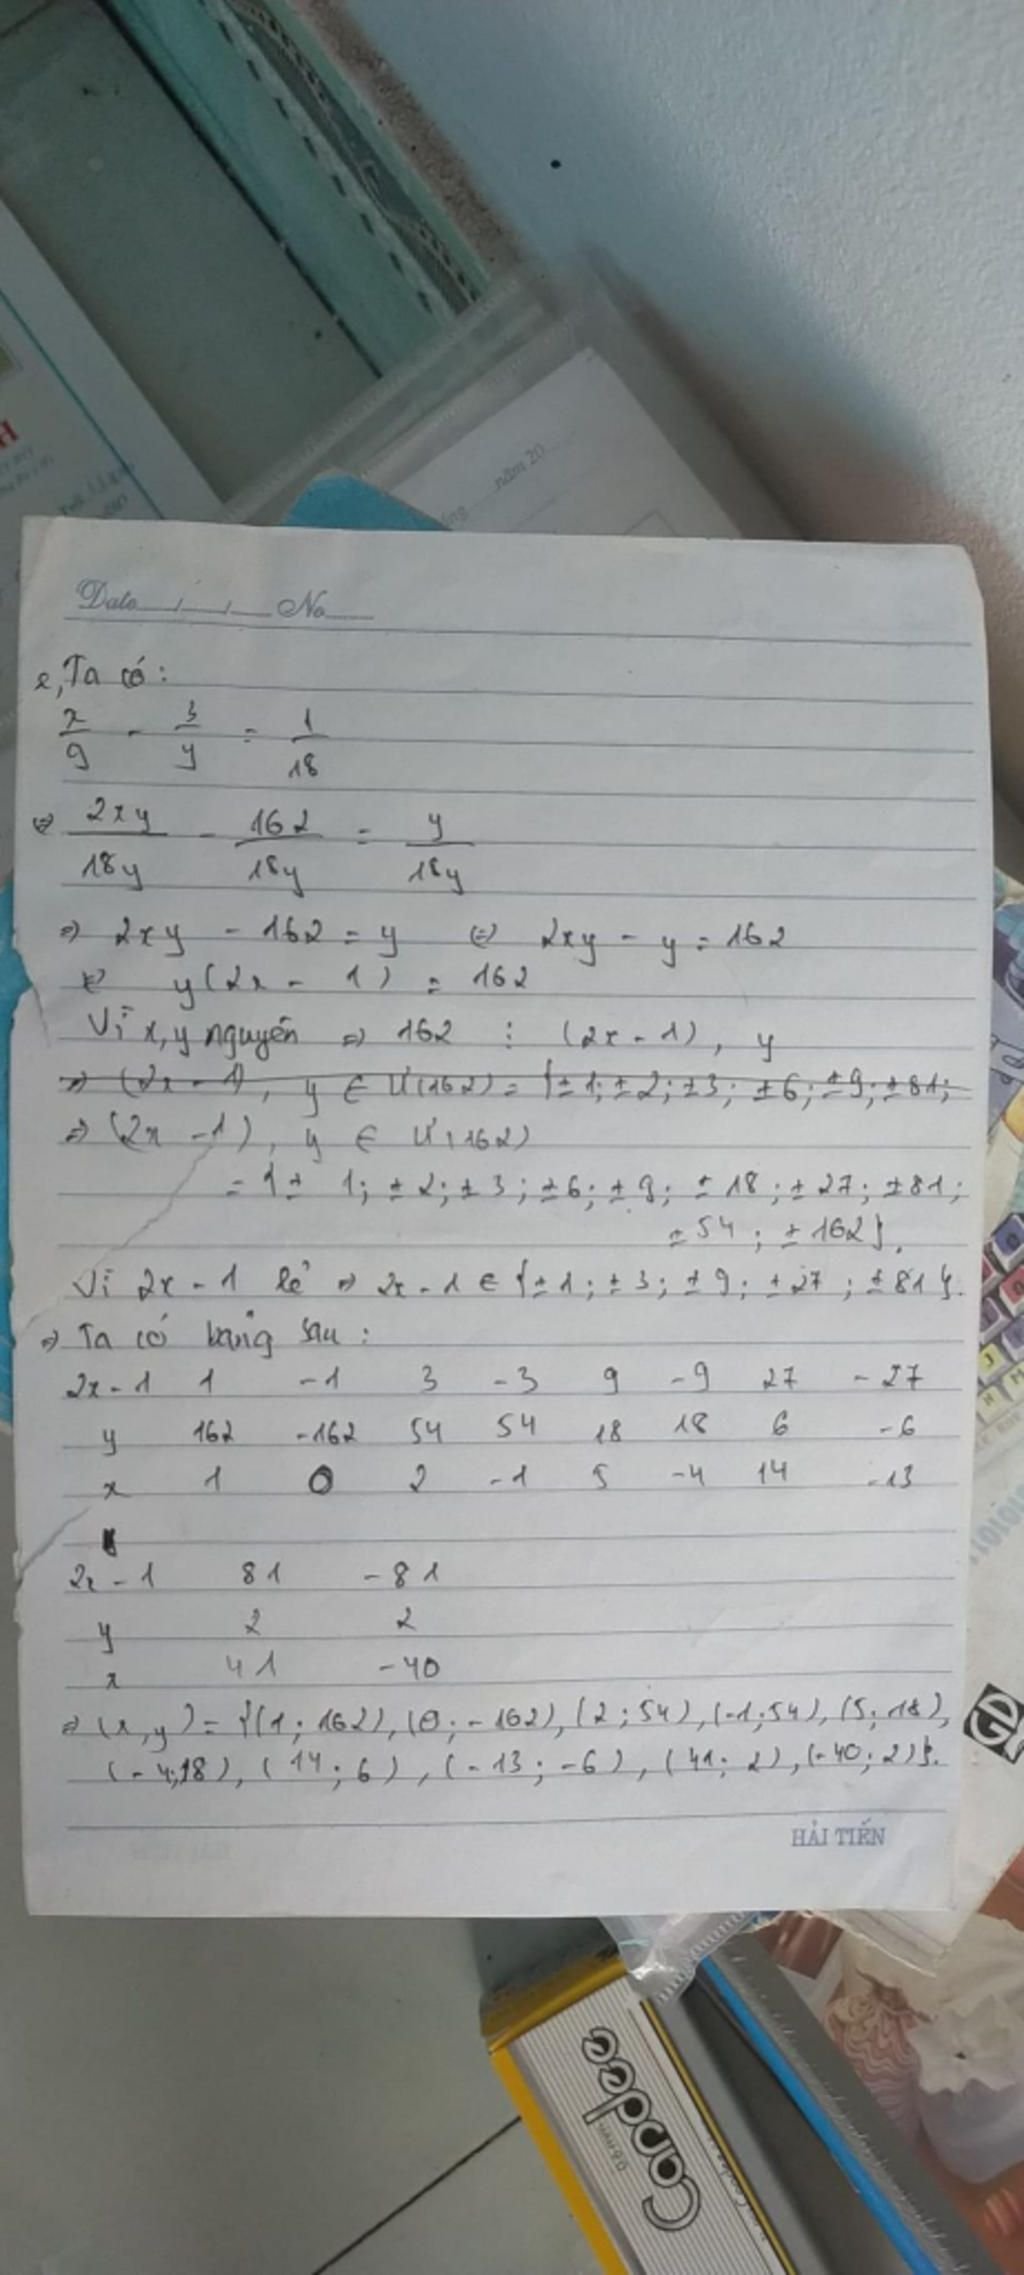 năm 20
Date / / No
e, Ta có:
x/9 - 3/y = 1/18
⇔ 2xy/18y - 162/18y = y/18y
⇒ 2xy - 162 = y ⇔ 2xy - y = 162
⇔ y(2x - 1) = 162
Vì x, y nguyên ⇒ 162 ⋮ (2x - 1), y
⇒ (2x - 1), y ∈ Ư(162) = {±1; ±2; ±3; ±6; ±9; ±81;
⇒ (2x - 1), y ∈ Ư(162)
= {± 1; ± 2; ± 3; ±6; ± 9; ± 18; ± 27; ±81;
±54; ±162}.
Vì 2x - 1 lẻ ⇒ 2x - 1 ∈ {±1; ±3; ±9; ±27; ±81}.
⇒ Ta có bảng sau:
2x - 1 1 -1 3 -3 9 -9 27 -27
y 162 -162 54 54 18 18 6 -6
x 1 0 2 -1 5 -4 14 -13
2x - 1 81 -81
y 2 2
x 41 -40
⇒ (x,y) = {(1; 162), (0; -162), (2; 54), (-1; 54), (5; 18),
(-4; 18), (14; 6), (-13; -6), (41; 2), (-40; 2)}.
HẢI TIẾN
Candee